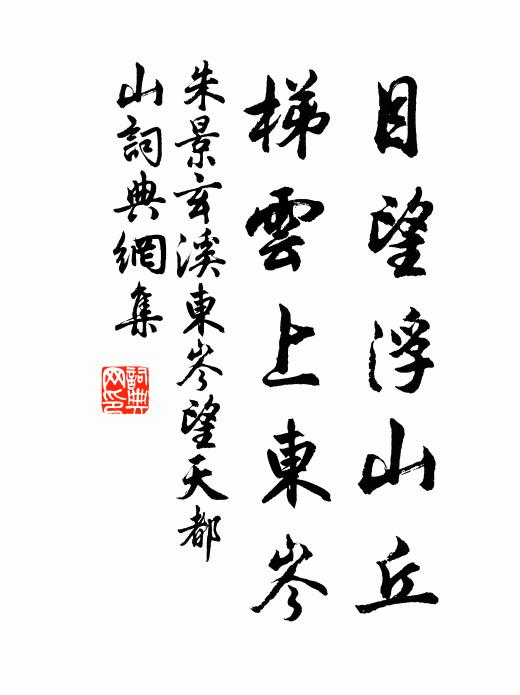 目望浮山丘
梯雲上東岑
朱景玄溪東岑望天都
山詞典網集
詞典
网印